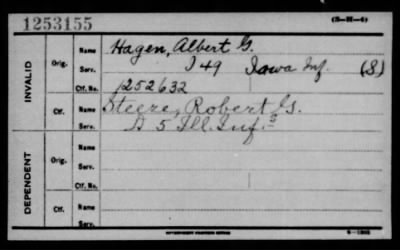 1253155 (3-H-4)
INVALID
Orig. Name Hagen, Albert G.
Serv. I 49 Iowa Inf. (S)
Ctf. No. 1252632
Ctf. Name Steere, Robert G.
Serv. D 5 Ill. Inf.
DEPENDENT
Orig. Name
Serv.
Ctf. No.
Ctf. Name
Serv.